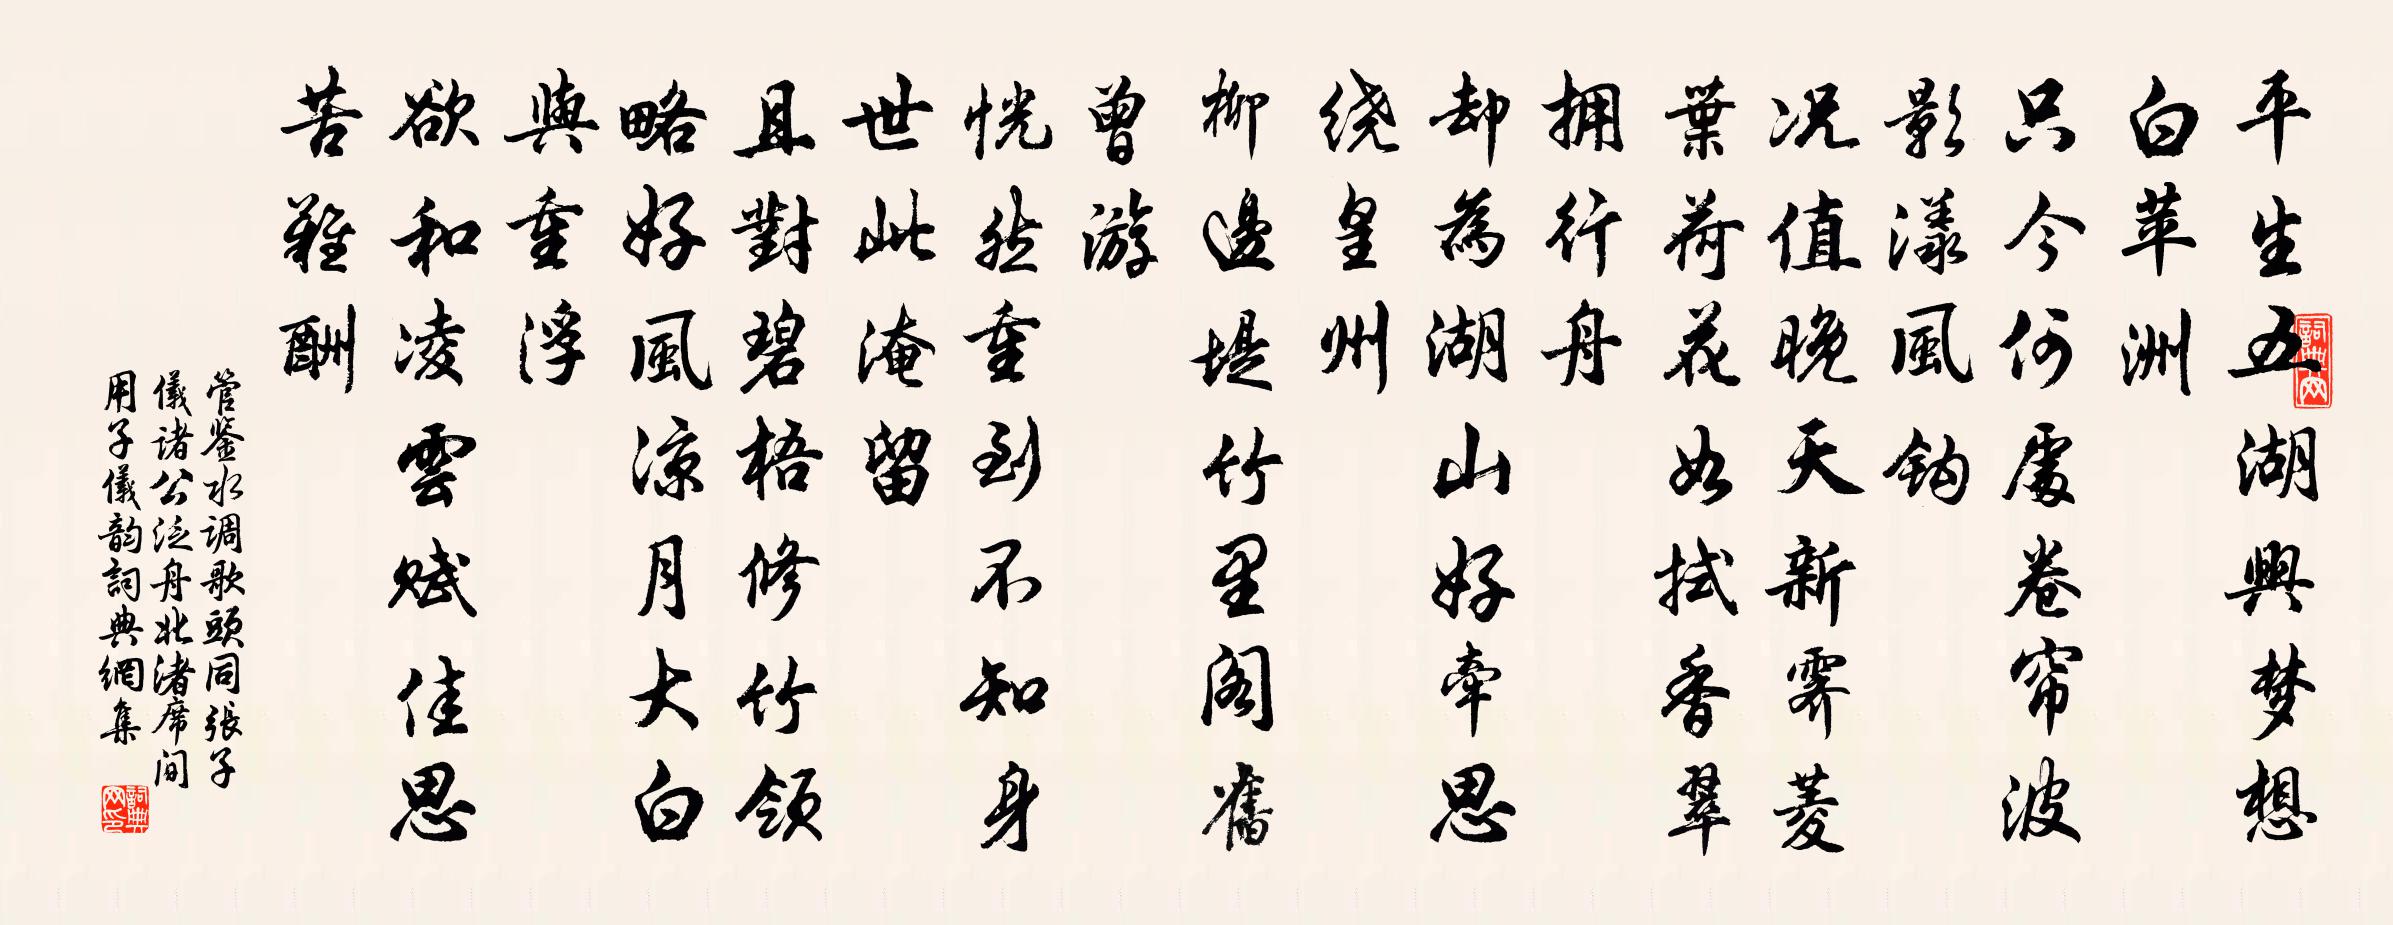 平生五湖興梦想
白苹洲
只今何處卷帘波
影漾風鈎
况值晚天新霽菱
葉荷花如拭香翠
拥行舟
却為湖山好牽思
绕皇州
柳邊堤竹里阁舊
曾游
恍然重到不知身
世此淹留
且對碧梧修竹領
略好風凉月大白
與重浮
欲和凌雲赋佳思
苦難酬
管鉴水调歌頭同張子
儀诸公泛舟北渚席间
用子儀韵詞典網集
詞典网
詞典网印